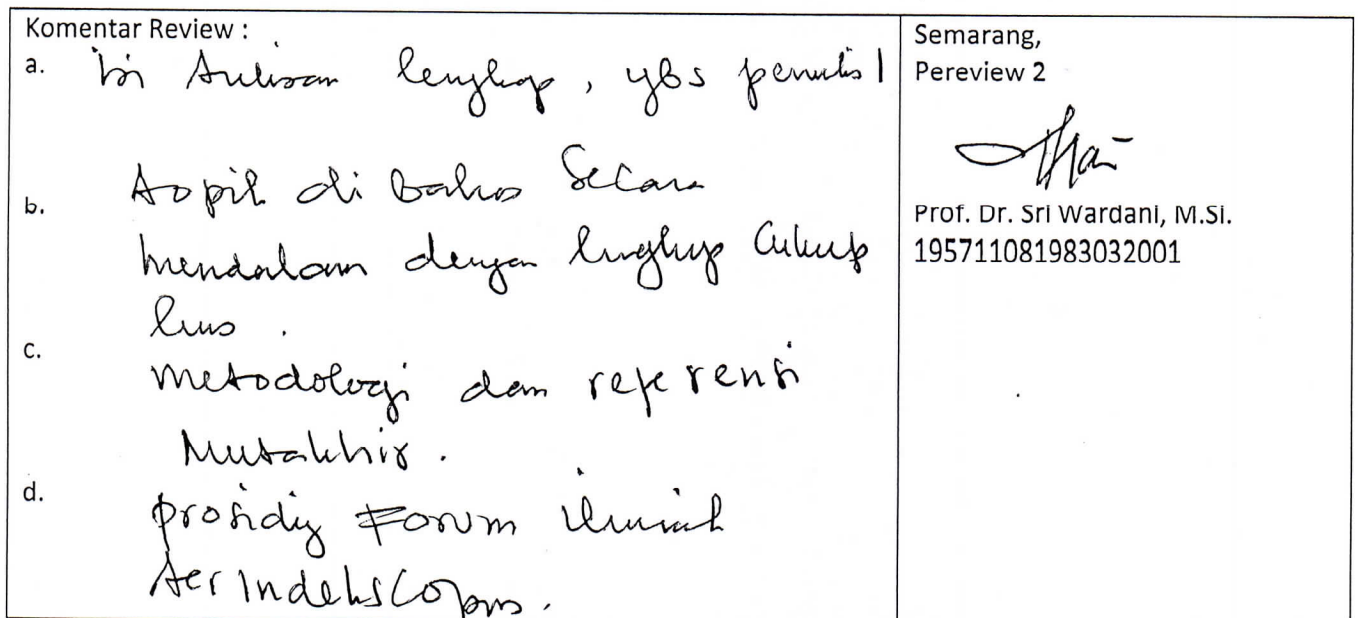 Komentar Review :
a. Isi tulisan lengkap, ybs penulis 1
b. topik di bahas secara
mendalam dengan lingkup cukup
luas.
c. metodologi dan referensi
Mutakhir.
d. prosiding Forum ilmiah
terindeks Scopus.
Semarang,
Pereview 2
Prof. Dr. Sri Wardani, M.Si.
195711081983032001